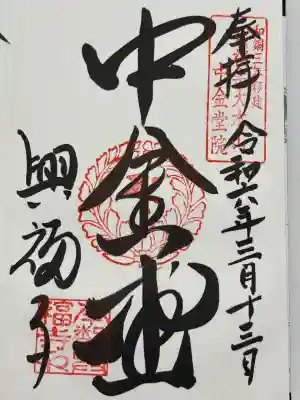 奉拝 令和六年三月十三日
中金堂
興福寺
中金堂院